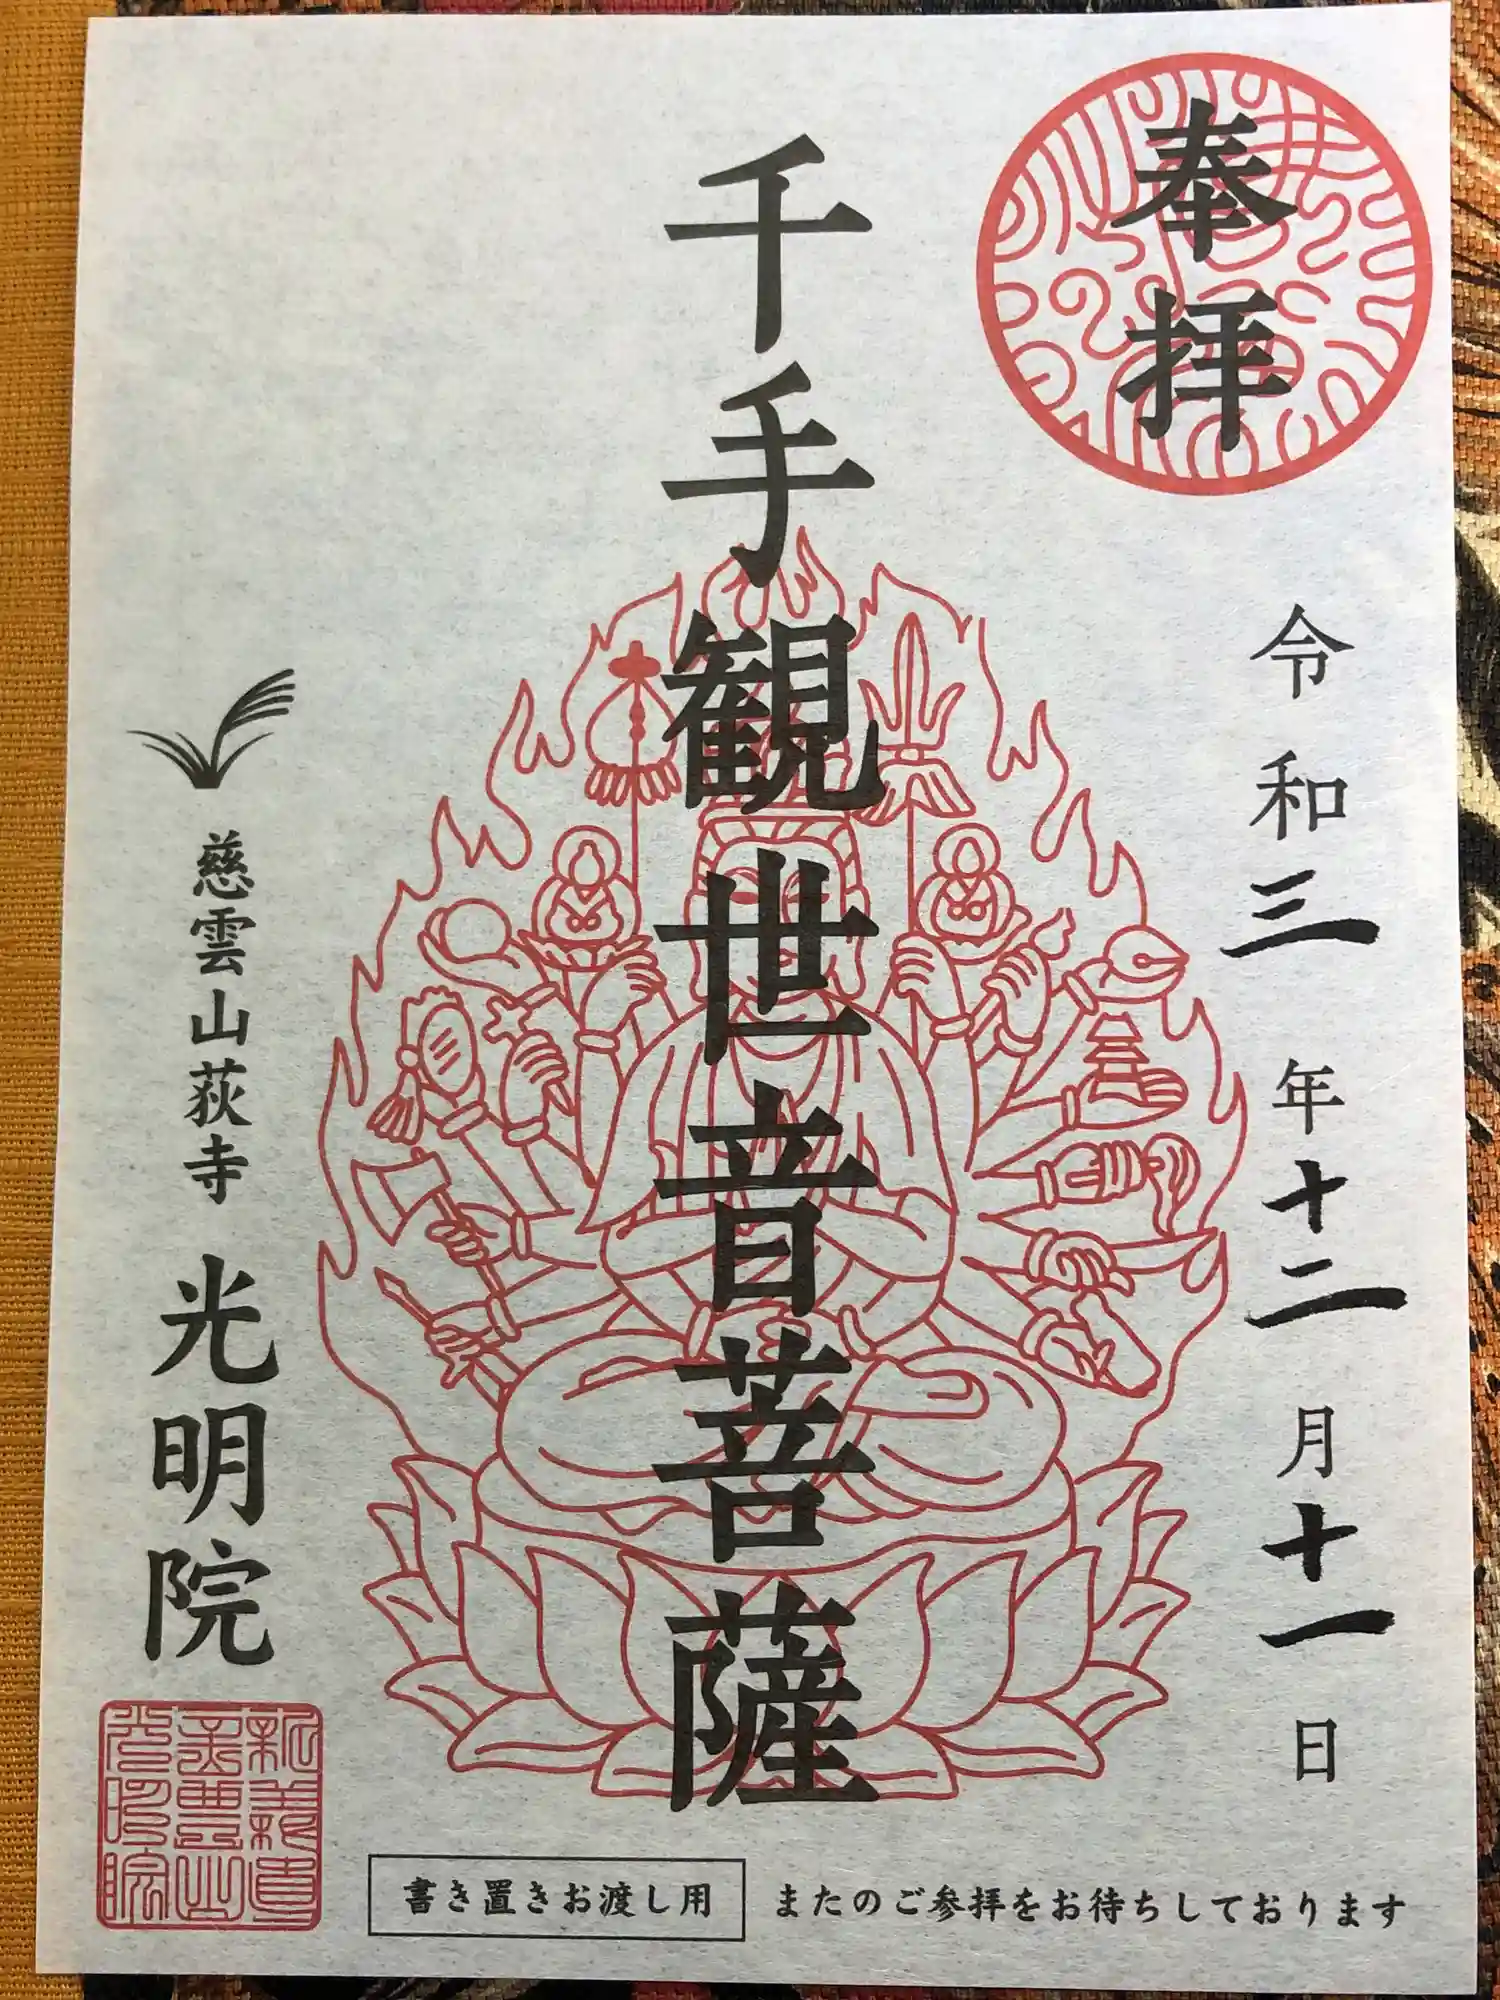 奉拝
令和三年十二月十一日
千手観世音菩薩
慈雲山荻寺 光明院
書き置きお渡し用
またのご参拝をお待ちしております